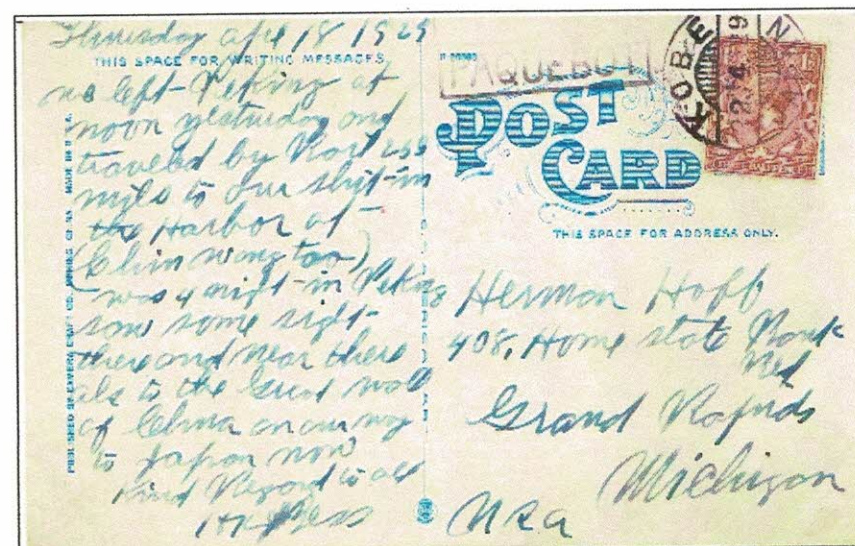 Thursday apr 18 1929
THIS SPACE FOR WRITING MESSAGES
we left Peking at
noon yesturday and
traveled by
mils to our ship in
the Harbor of
(Chin wang tao)
was 4 night in Peking
saw some sight
there and near there
als to the Great wall
of China on our way
to Japan now
Kind Regard to all
PAQUEBOT
KOBE
POST
CARD
THIS SPACE FOR ADDRESS ONLY.
Herman Hoff
408, Home state Bank
Grand Rapids
Michigan
USA